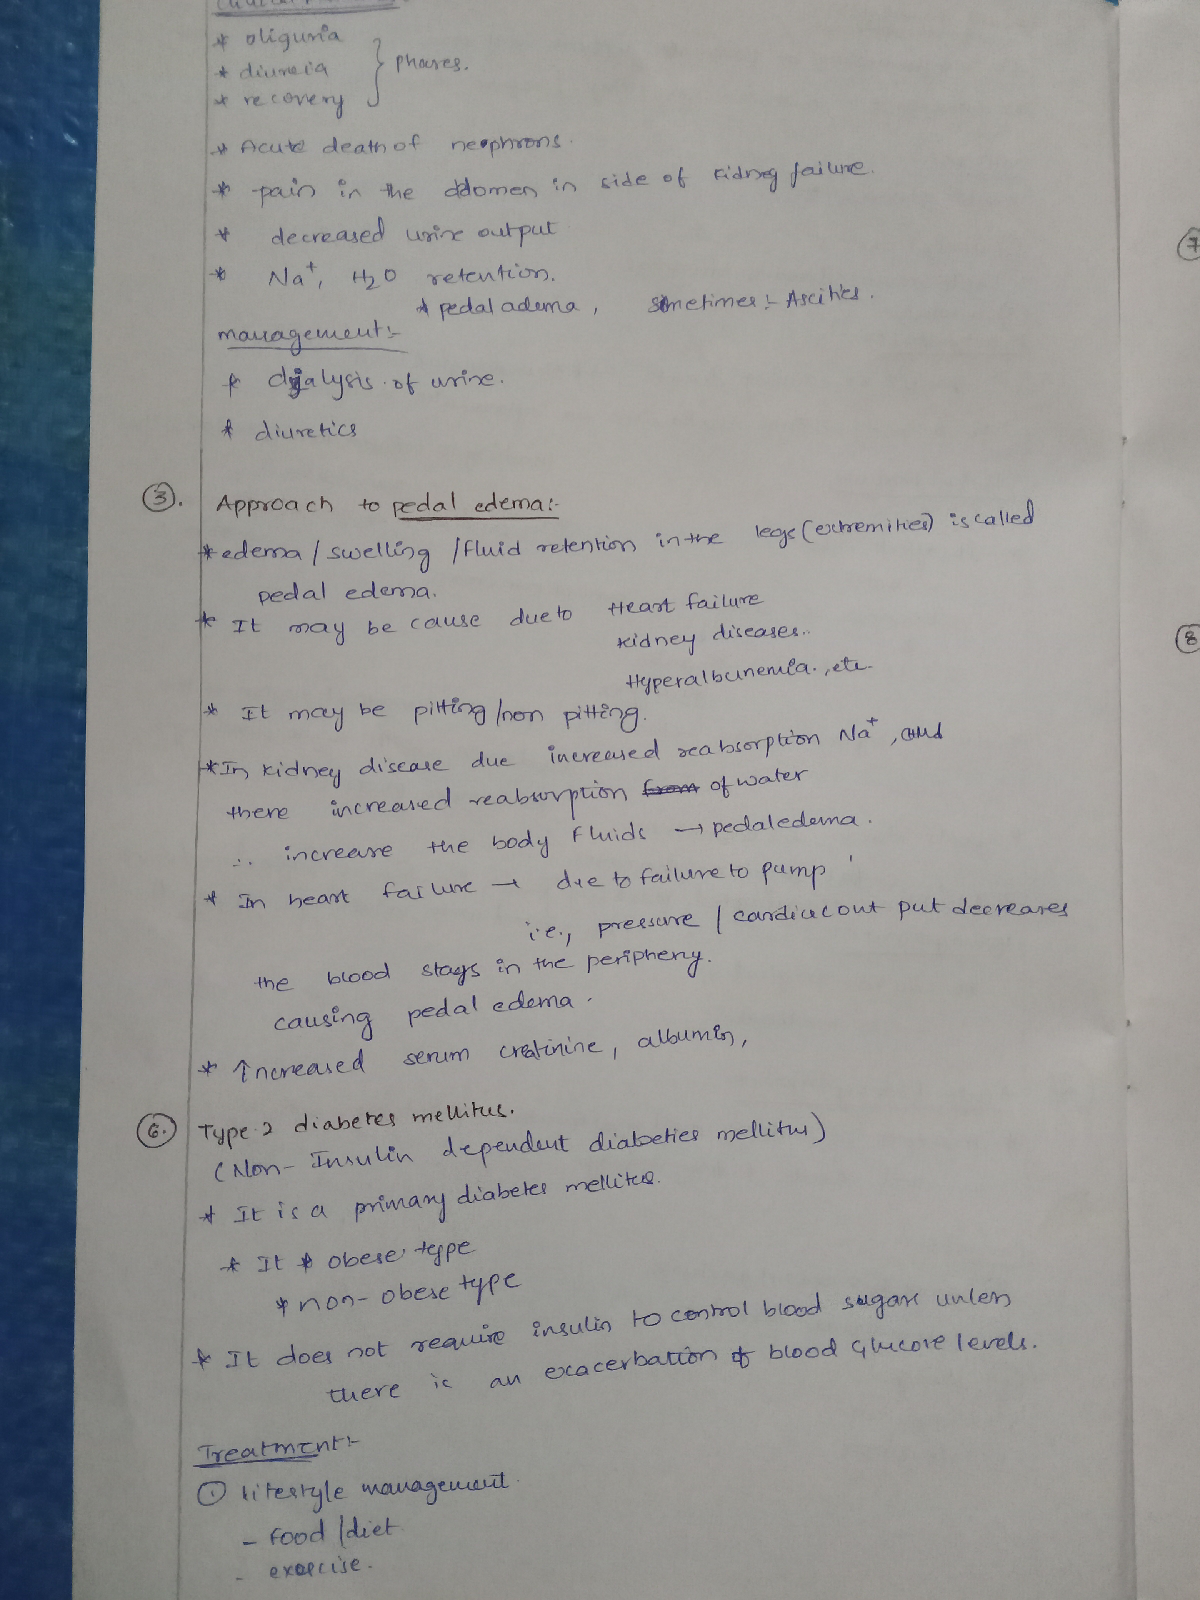 * oliguria
* diureia } phases.
* recovery
* Acute death of neophrons.
* pain in the abdomen in side of kidney failure.
* decreased urine output
* Na+, H2O retention.
* pedal adema, sometimes :- Ascities.
management:-
* dialysis of urine.
* diuretics
3. Approach to pedal edema:-
* edema / swelling / fluid retention in the legs (extremities) is called
pedal edema.
* It may be cause due to Heart failure
kidney diseases..
Hyperalbunemia., etc.
* It may be pitting / non pitting.
* In kidney disease due increased reabsorption Na+, and
there increased reabsorption from of water
∴ increase the body fluids → pedal edema.
* In heart failure → due to failure to pump
i.e., pressure / cardiac out put decreases
the blood stays in the periphery.
causing pedal edema.
* Increased serum creatinine, albumin,
6. Type 2 diabetes mellitus.
(Non- Insulin dependent diabeties mellitus)
* It is a primary diabetes mellitus.
* It * obese type
* non- obese type
* It does not require insulin to control blood sugars unless
there is an exacerbation of blood glucose levels.
Treatment:-
1 lifestyle management.
- food / diet
- exercise.
7
8